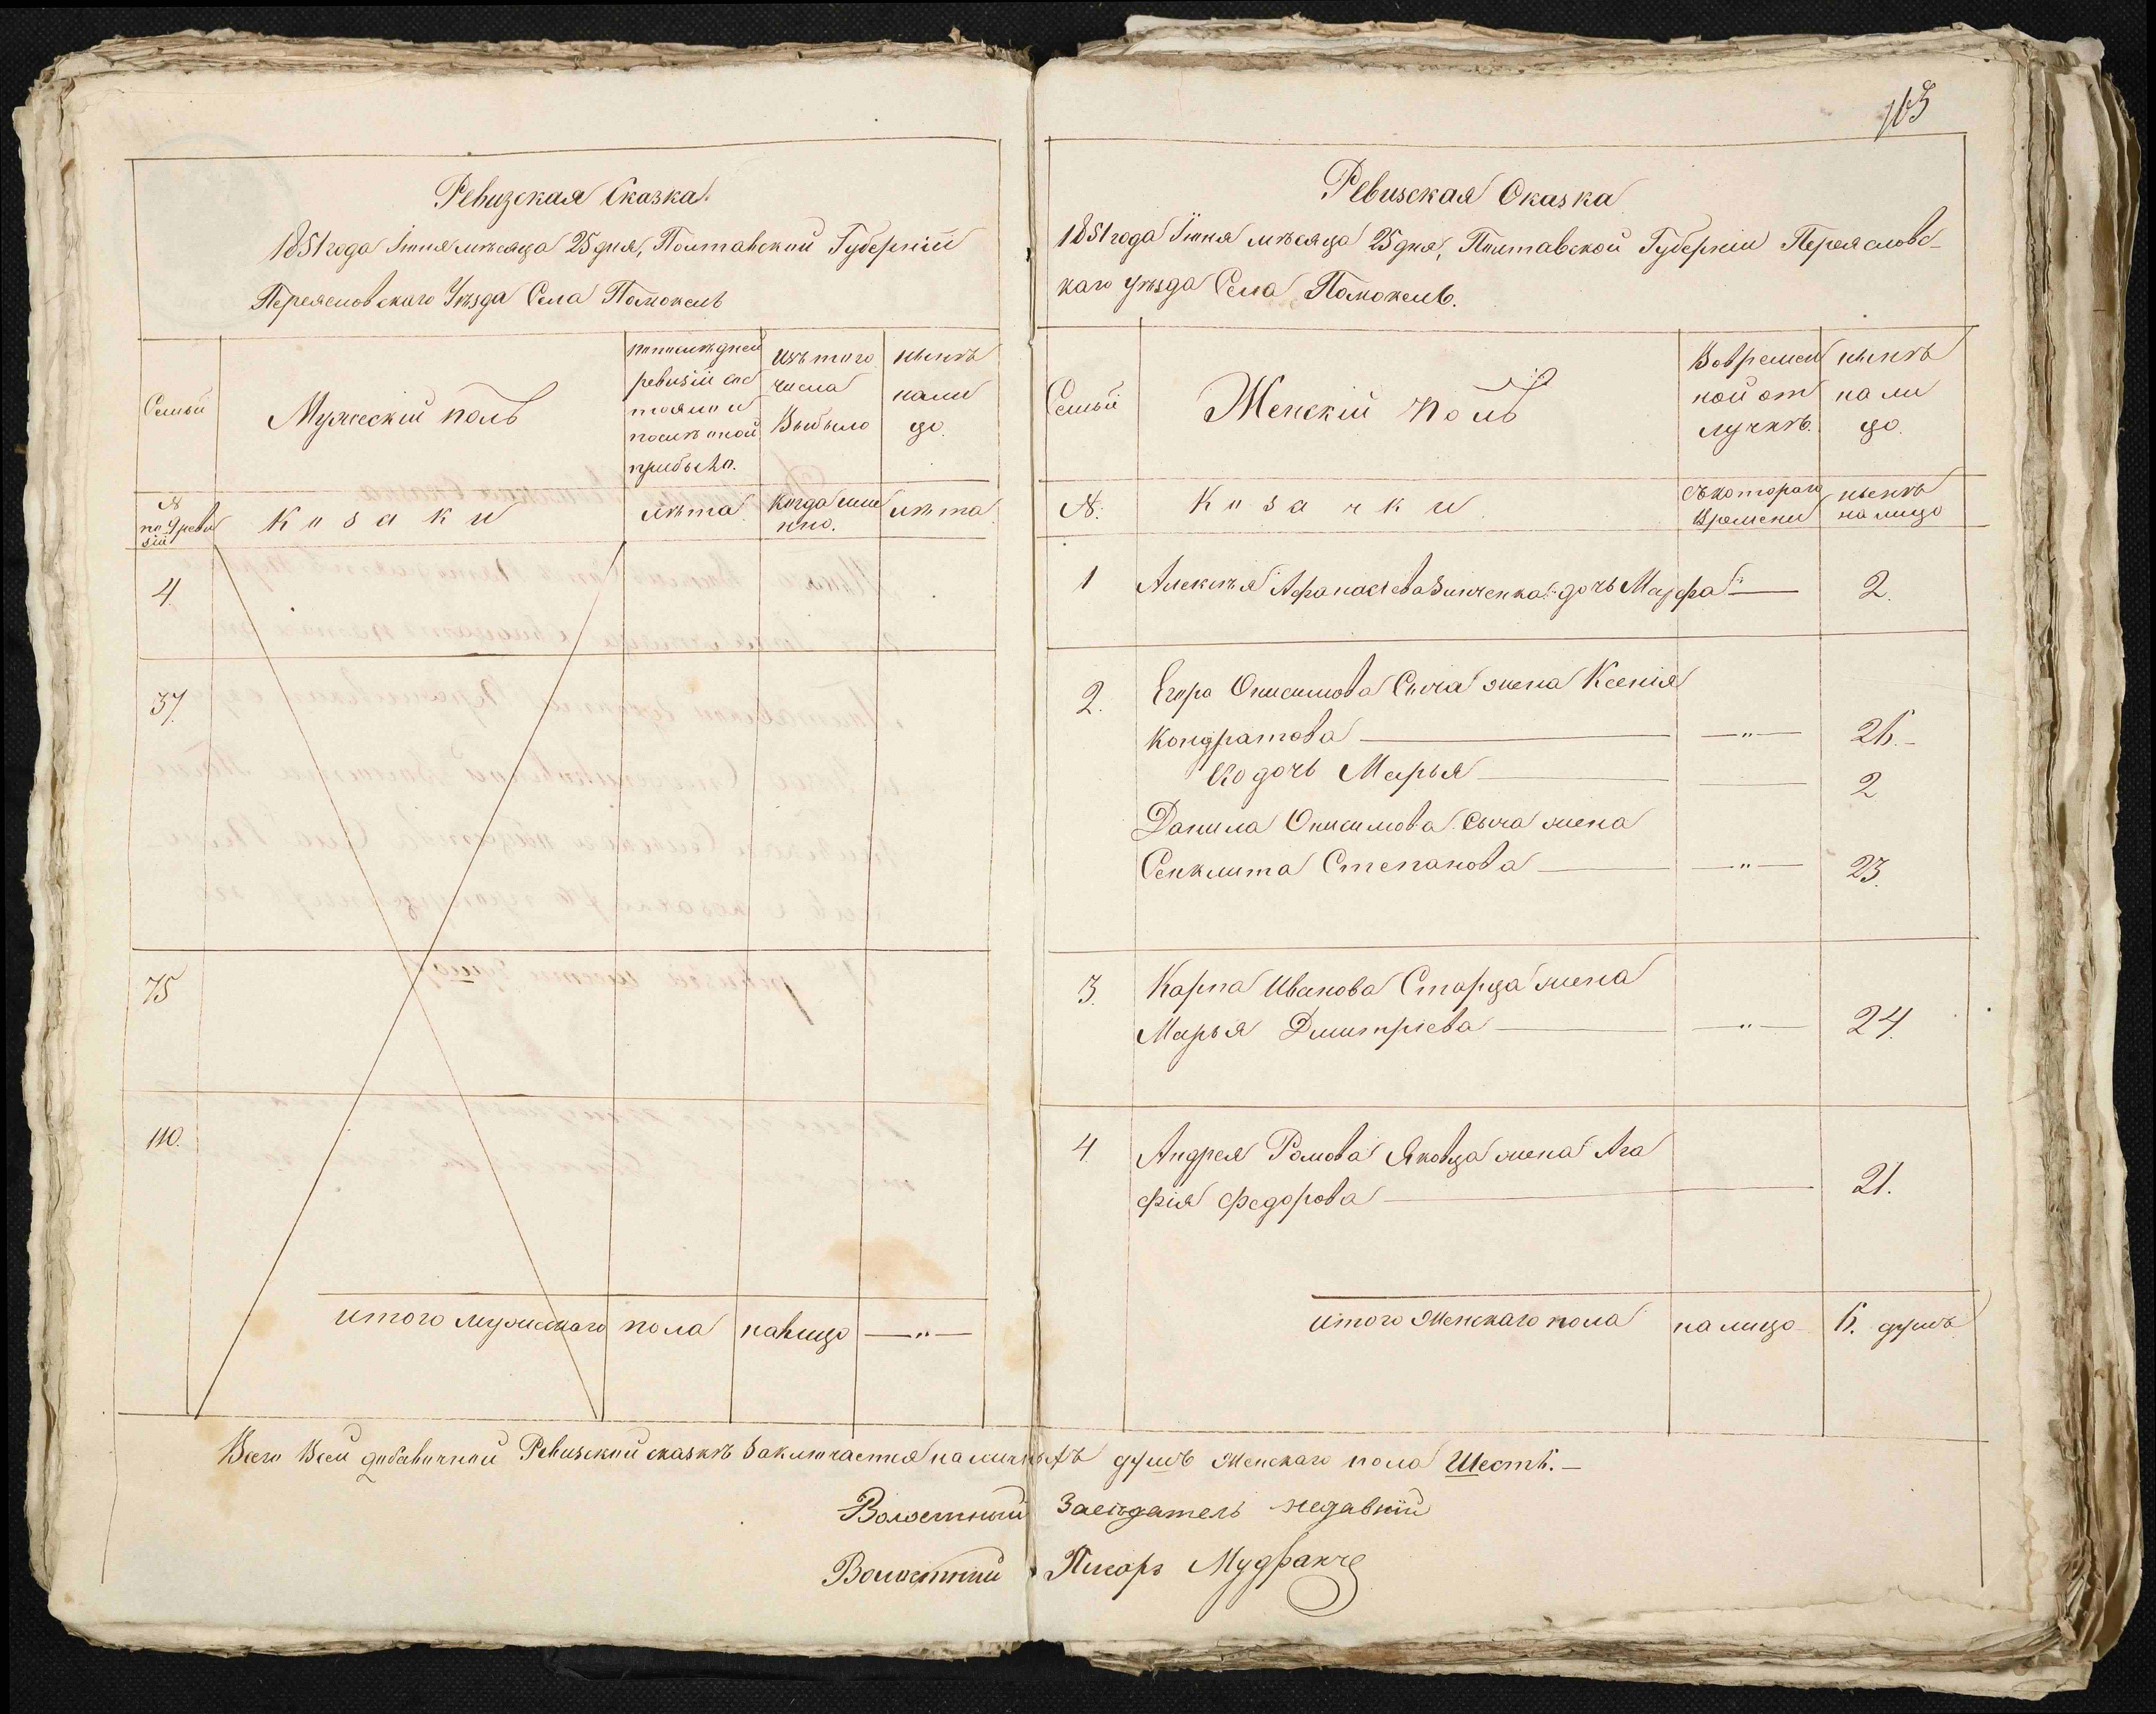 Ревизская Сказка.
1851 года Іюня мѣсяца 25 дня, Полтавской Губерніи
Переясловскаго Уѣзда Села Помоклъ
Семьи
Мужескій полъ
по послѣдней
ревизіи сос
тояло и
послѣ оной
прибыло.
изъ того
числа
Выбыло
нынѣ
нали
цо.
№
по 9 реви
зіи
Козаки
лѣта
Когда имен
нно.
лѣта
4.
37.
75
110.
итого мужескаго пола налицо —„—
163
Ревизская Сказка
1851 года Іюня мѣсяца 25 дня, Полтавской Губерніи Переясловс-
каго уѣзда Села Помоклъ.
Семьи
Женскій полъ
Вовремен
ной от
лучкѣ.
нынѣ
нали
цо.
№.
Козачки
съ котораго
времени
нынѣ
на лицо
1 Алексѣя Афанасіева Зинченка дочь Марфа — 2.
2. Егора Онисимова Сыча жена Ксенія
Кондратова — —„— 26.-
Его дочь Марья — — 2
Данила Онисимова Сыча жена
Сенклита Степанова — —„— 23.
3. Карпа Иванова Старца жена
Марья Дмитріева — —„— 24.
4. Андрея Ромова Яковца жена Ага
фія Федорова — 21.
итого Женскаго пола на лицо 6. душъ
Всего Всей добавочной Ревизской сказкѣ Заключается наличныхъ душъ Женскаго пола Шесть.—
Волостный Засѣдатель Недавній
Волостный Писарь